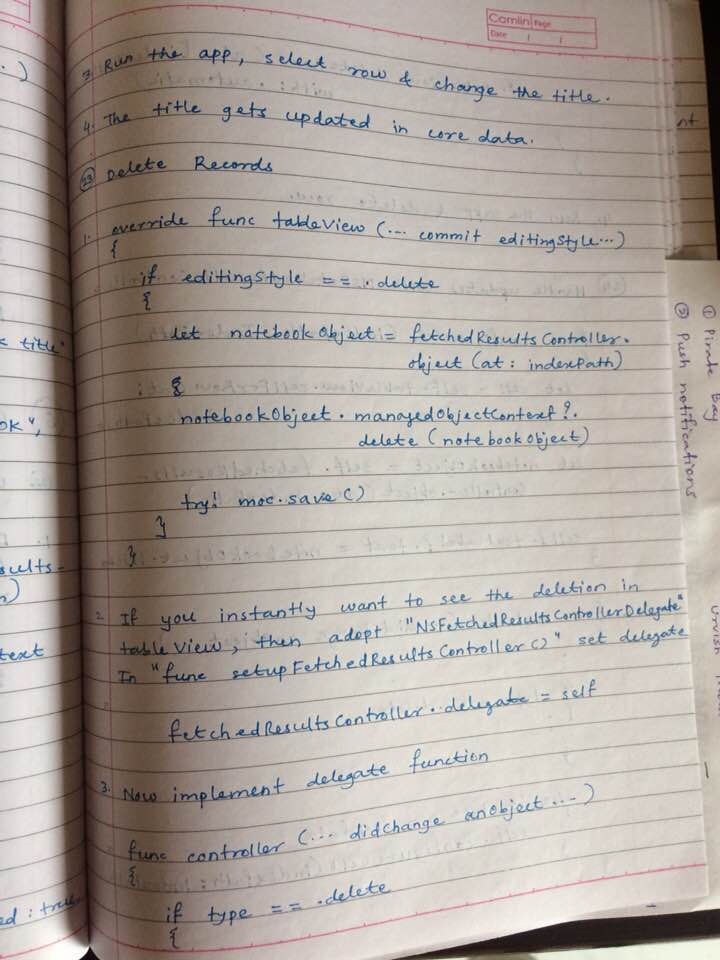 Camlin Page
Date / /
3. Run the app, select row & change the title.
4. The title gets updated in core data.
23 Delete Records
1. override func tableView (... commit editingStyle...)
{
if editingStyle == .delete
{
let notebookObject = fetchedResultsController.
object (at: indexPath)
{
notebookObject. managedObjectContext?.
delete (notebookObject)
try! moc.save()
}
}
2. If you instantly want to see the deletion in
table View, then adopt "NSFetchedResultsControllerDelegate"
In "func setupFetchedResultsController()" set delegate
fetchedResultsController.delegate = self
3. Now implement delegate function
func controller (... didchange anObject ...)
{
if type == .delete
{
...)
title"
OK",
sults-
n)
text
ed : true
nt
① Pirate Bay
② Push notifications